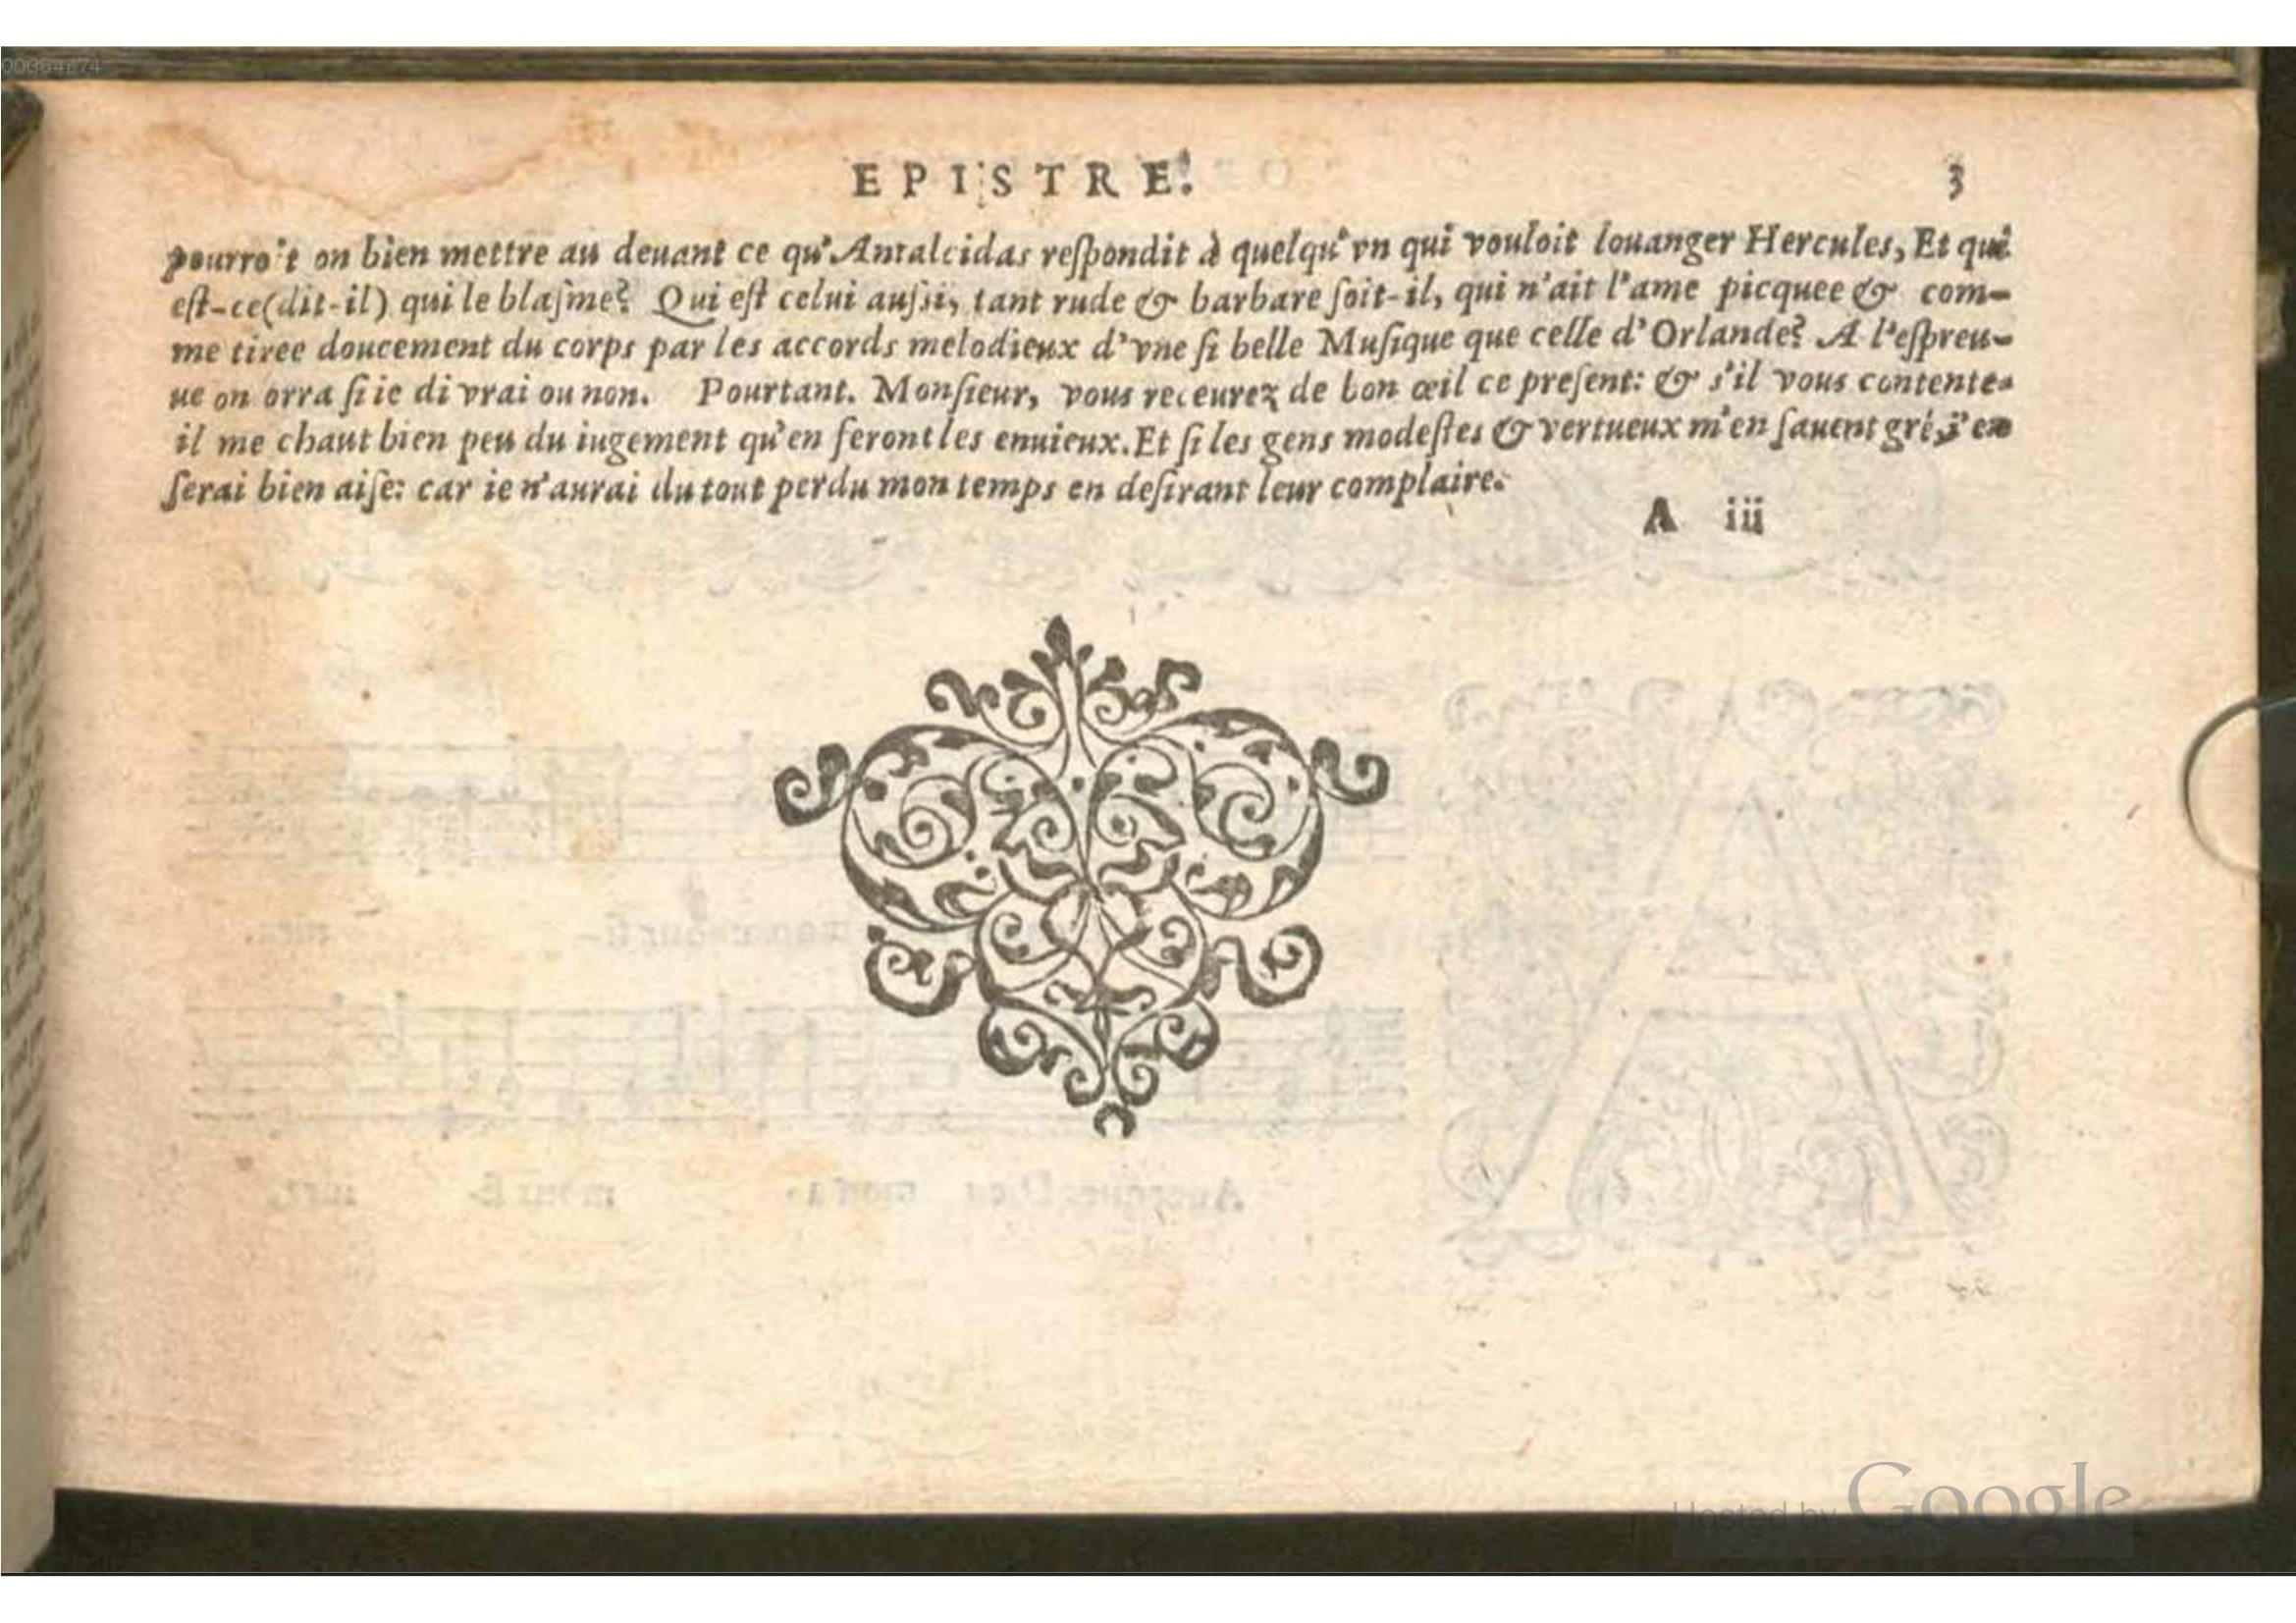 00364674
EPISTRE. 3
pourroit on bien mettre au deuant ce qu'Antalcidas reſpondit à quelqu'vn qui vouloit louanger Hercules, Et qui
eſt-ce(dit-il) qui le blaſme? Qui eſt celui auſsi, tant rude & barbare ſoit-il, qui n'ait l'ame picquee & com-
me tiree doucement du corps par les accords melodieux d'vne ſi belle Muſique que celle d'Orlande? A l'eſpreu-
ue on orra ſi ie di vrai ou non. Pourtant. Monſieur, vous receurez de bon œil ce preſent: & s'il vous contente,
il me chaut bien peu du iugement qu'en feront les enuieux. Et ſi les gens modeſtes & vertueux m'en ſauent gré, i'en
ſerai bien aiſe: car ie n'aurai du tout perdu mon temps en deſirant leur complaire.
A iii
Hosted by Google